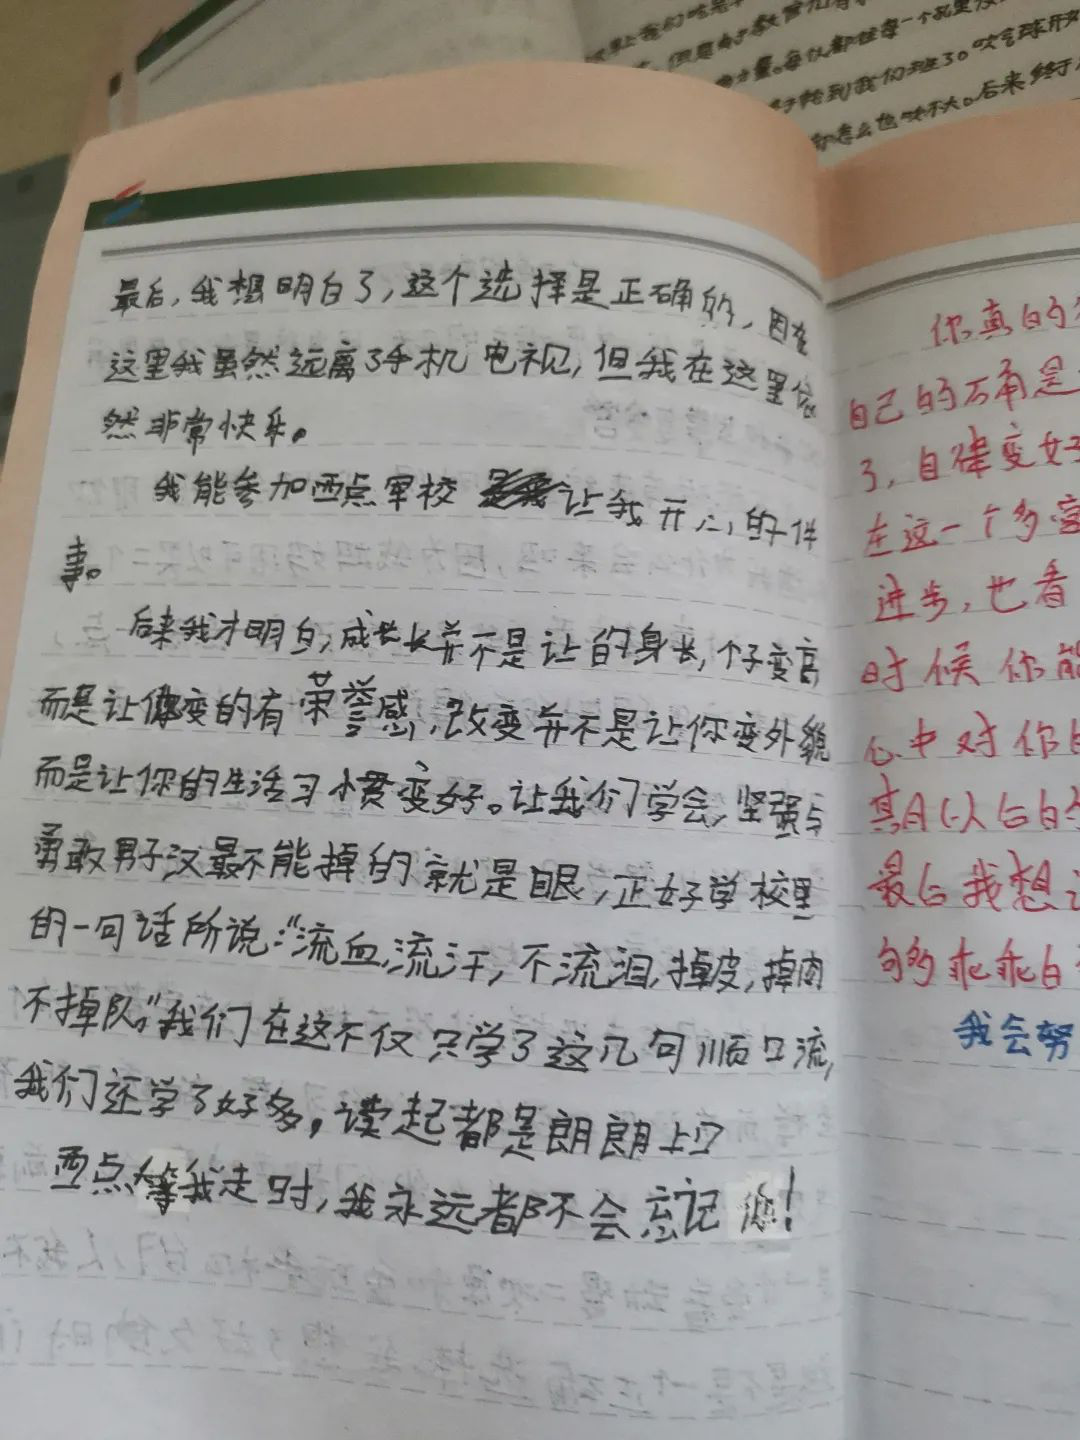 上我们吃完
但是由于教育
方量。每队都在每一个
轮到我们班了。吹气球
怎么也吹不大。后来终于
最后,我想明白了,这个选择是正确的,因在
这里我虽然远离了手机电视,但我在这里依
然非常快乐。
我能参加西点军校 让我开心的件
事。
后来我才明白,成长并不是让的身长,个子变高
而是让你变的有荣誉感,改变并不是让你变外貌
而是让你的生活习惯变好。让我们学会,坚强与
勇敢男子汉最不能掉的就是眼,正好学校里
的一句话所说:“流血,流汗,不流泪,掉皮,掉肉
不掉队。”我们在这不仅只学了这几句顺口流,
我们还学了好多,读起都是朗朗上口
西点等我走时,我永远都不会忘记你!
你真的
自己的
了,自律变好
在这一个多
进步,也看
时候你能
心中对你
以后的
最后我想
够乖乖的
我会努